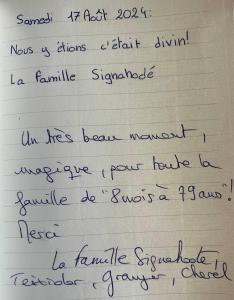 Samedi 17 Août 2024:
Nous y étions c'était divin!
La famille Signahodé
Un très beau moment,
magique, pour toute la
famille de "8 mois à 79 ans"!
Merci
La famille Signahode,
Granger, Cherel